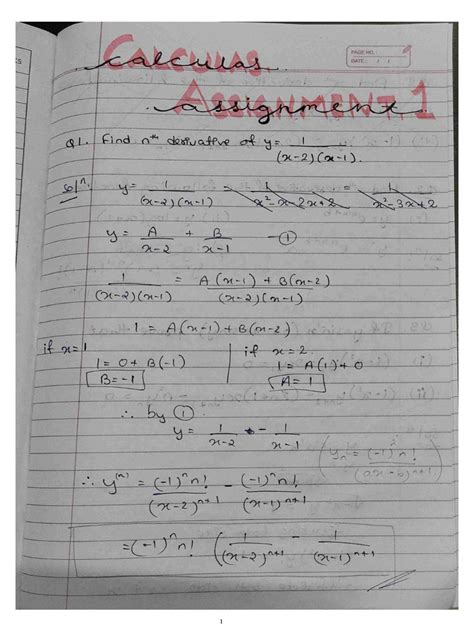 PAGE NO.:
DATE: / /
Calculas
Assignment 1
Q1. Find nth derivative of y = 1/(x-2)(x-1).
Solⁿ. y = 1/(x-2)(x-1) = 1/x²-x-2x+2 = 1/x²-3x+2
y = A/x-2 + B/x-1 — ①
1/(x-2)(x-1) = A(x-1) + B(x-2)/(x-2)(x-1)
1 = A(x-1) + B(x-2)
if x=1
1 = 0 + B(-1)
B = -1
if x = 2
1 = A(1) + 0
A = 1
∴ by ①
y = 1/x-2 - 1/x-1
(yₙ = (-1)ⁿ n!/(ax-b)ⁿ⁺¹)
∴ y⁽ⁿ⁾ = (-1)ⁿ n!/(x-2)ⁿ⁺¹ - (-1)ⁿ n!/(x-1)ⁿ⁺¹
= (-1)ⁿ n! (1/(x-2)ⁿ⁺¹ - 1/(x-1)ⁿ⁺¹
1